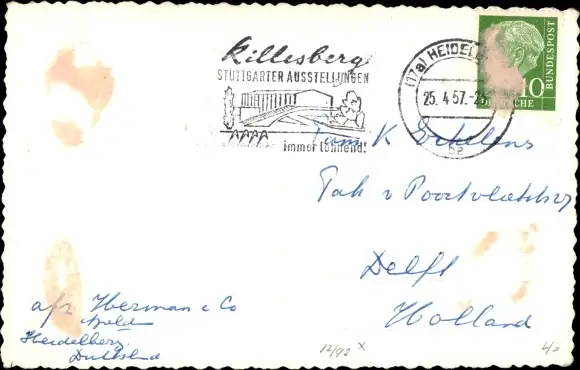 Killesberg
STUTTGARTER AUSSTELLUNGEN
immer lohnend!
(17a) HEIDEL
25.4.57.-2
10
BUNDESPOST
CHE
Fam K Erkelens
Jak v Poortvlietstr 27
Delft
Holland
afz Herman & Co
Heidelberg
Duitsland
12/92 x
4/=